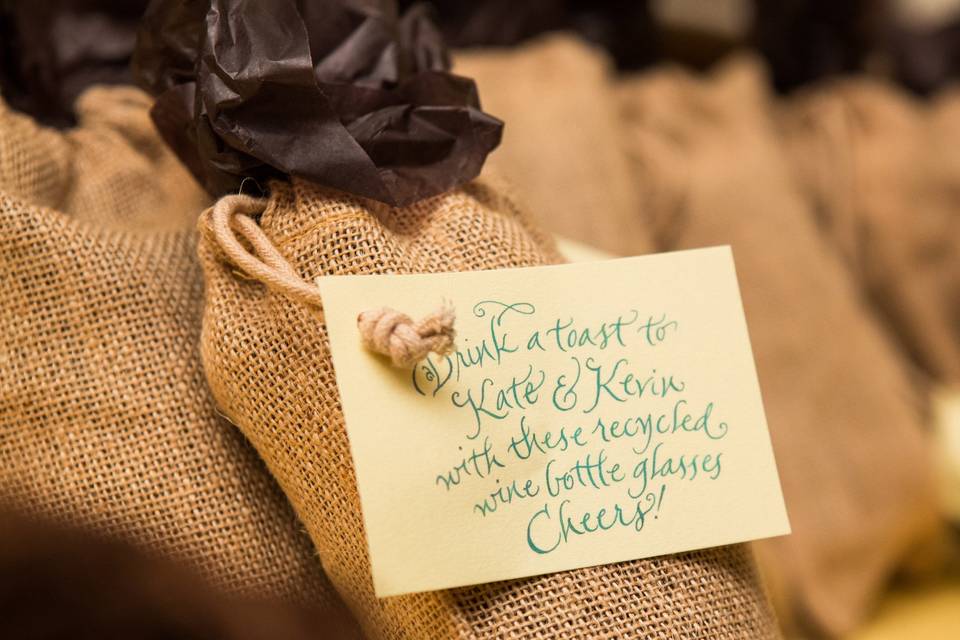 Drink a toast to
Kate & Kevin
with these recycled
wine bottle glasses
Cheers!